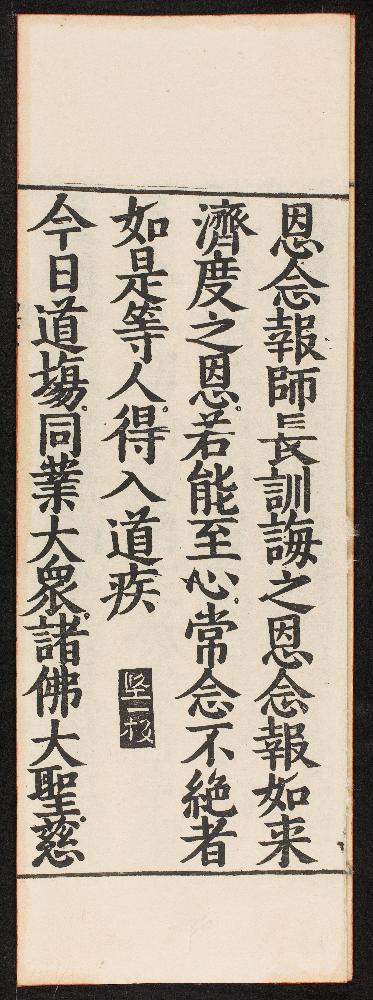 恩念報師長訓誨之恩念報如来
濟度之恩若能至心常念不絶者
如是等人得入道疾
今日道塲同業大衆諸佛大聖慈